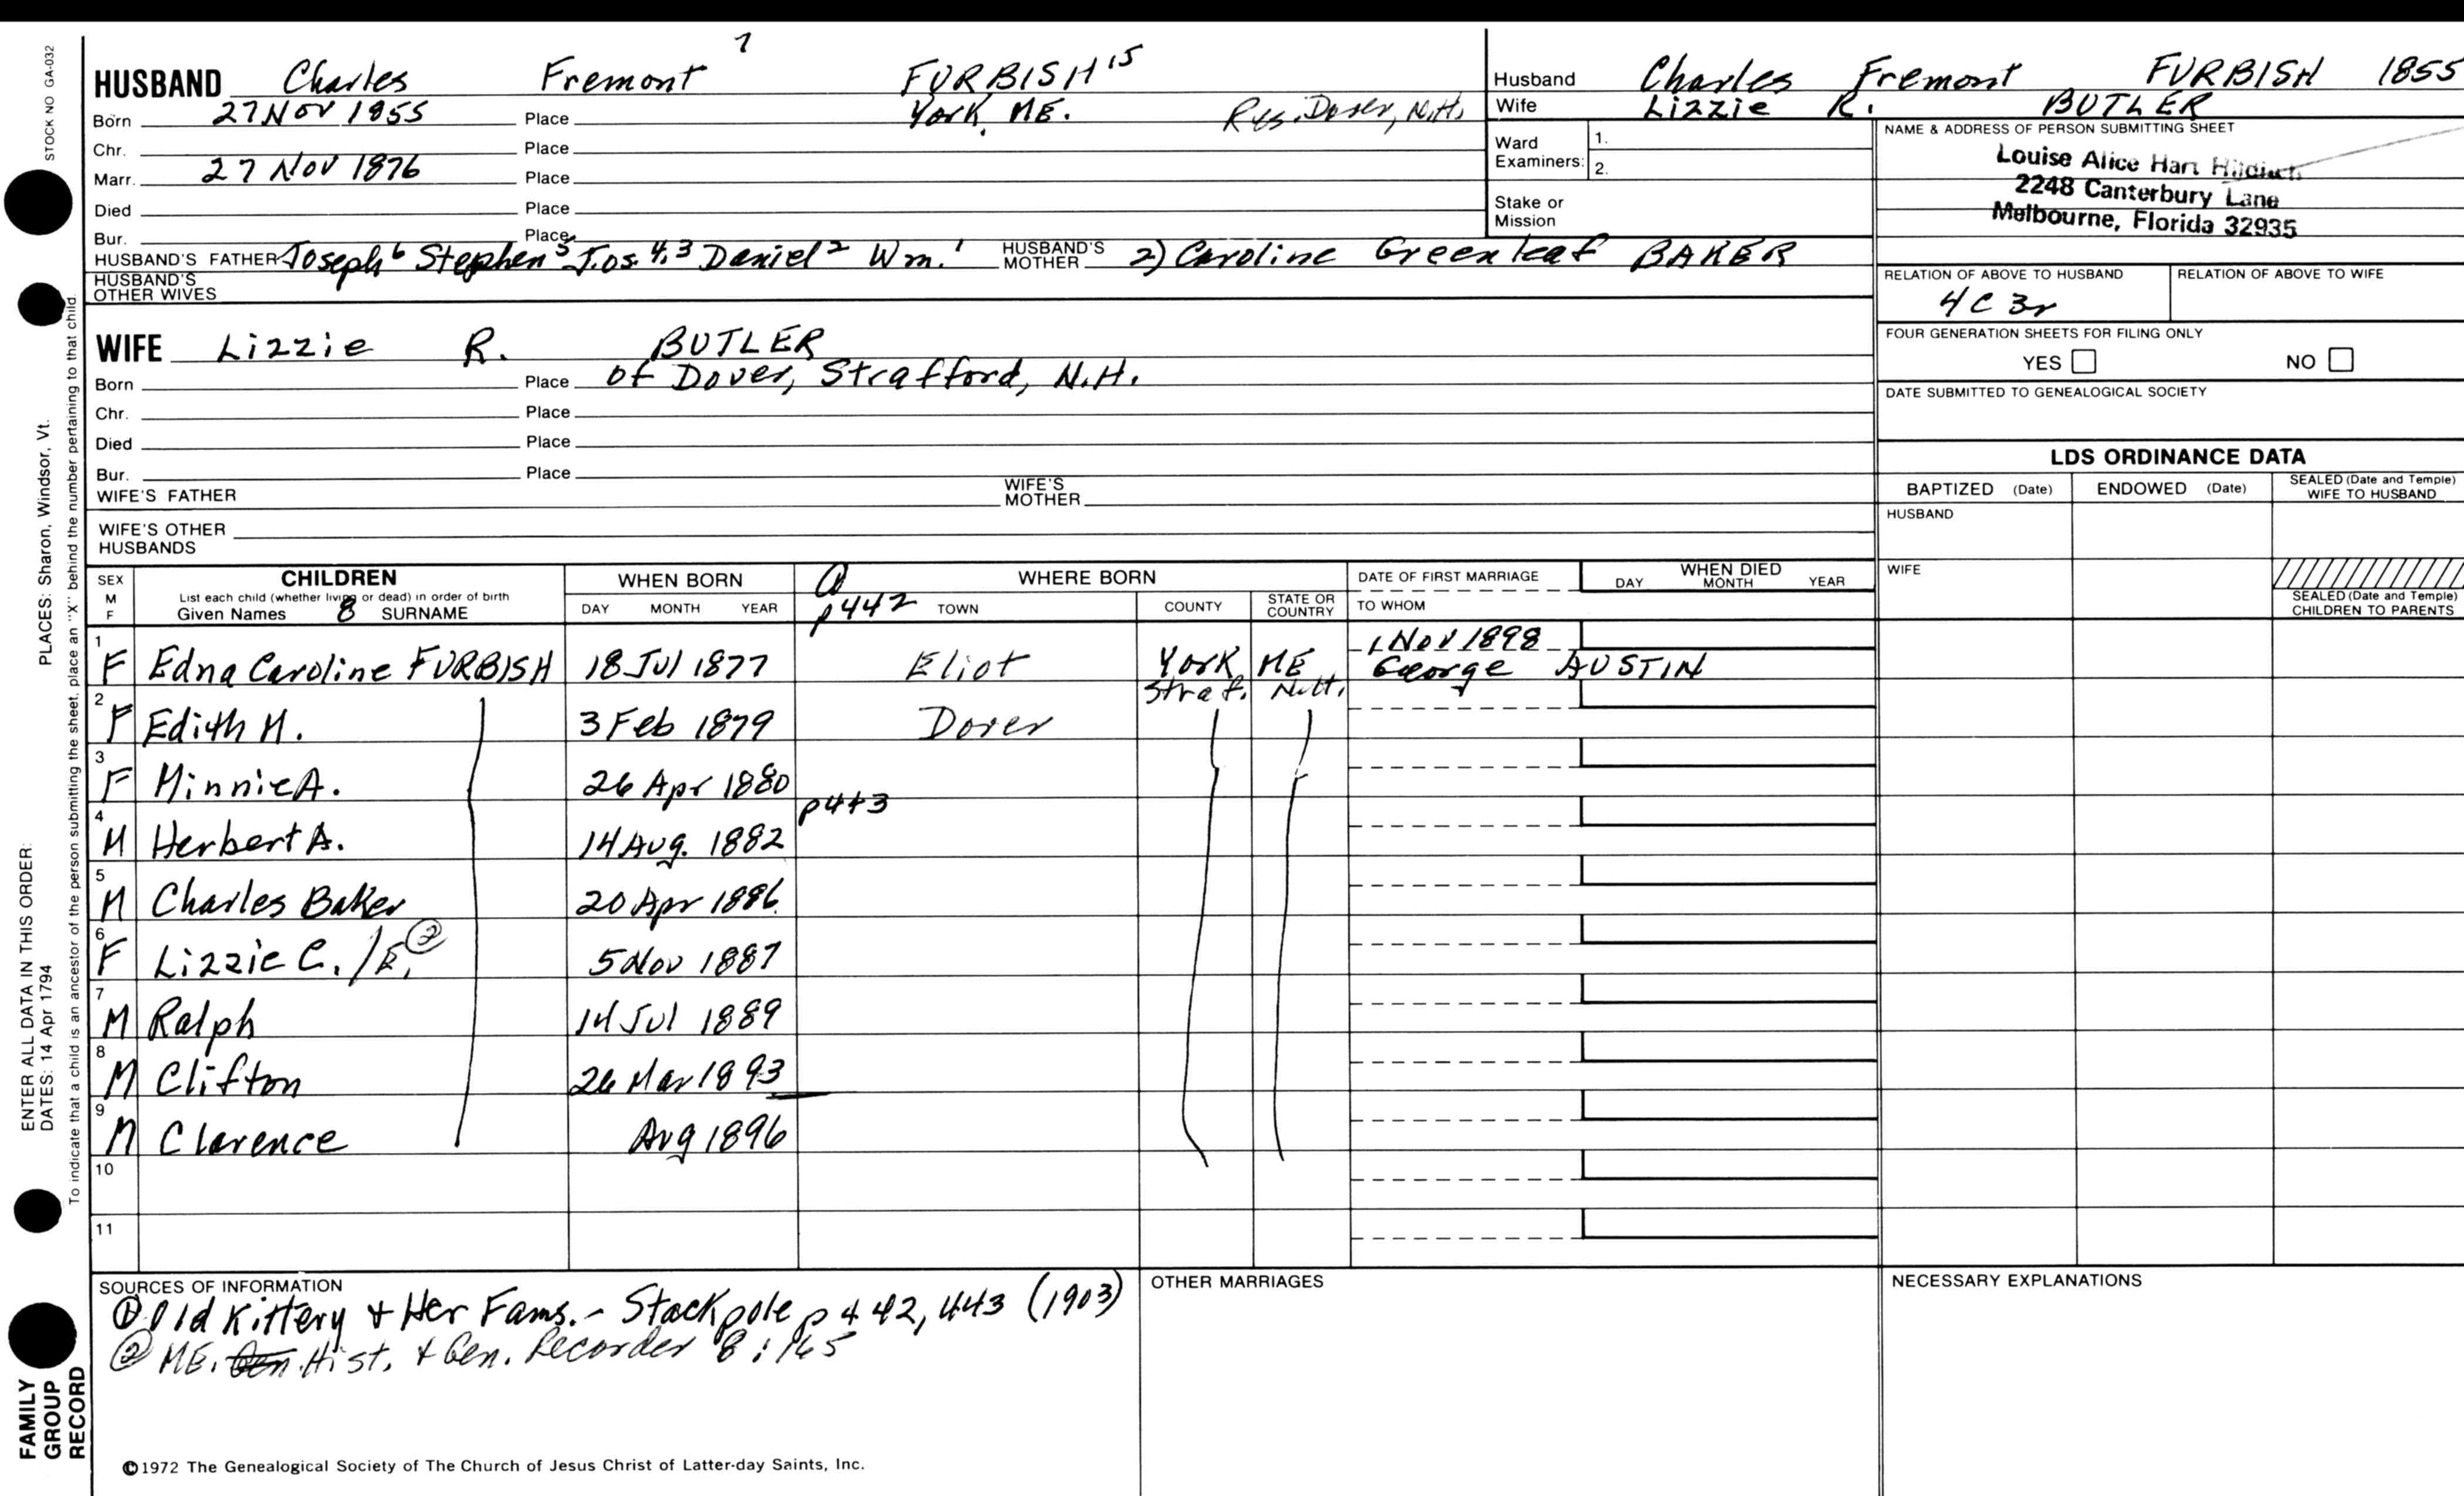 STOCK NO GA-032
PLACES: Sharon, Windsor, Vt.
ENTER ALL DATA IN THIS ORDER:
DATES: 14 Apr 1794
To indicate that a child is an ancestor of the person submitting the sheet, place an "X" behind the number pertaining to that child.
FAMILY GROUP RECORD
HUSBAND Charles Fremont 7 FURBISH 15
Born 27 Nov 1855 Place York, ME. Res. Dover, N.H.
Chr. Place
Marr. 27 Nov 1876 Place
Died Place
Bur. Place
HUSBAND'S FATHER Joseph 6 Stephen 5 Jos. 4,3 Daniel 2 Wm. 1 HUSBAND'S MOTHER 2) Caroline Greenleaf BAKER
HUSBAND'S OTHER WIVES
WIFE Lizzie R. BUTLER
Born Place of Dover, Strafford, N.H.
Chr. Place
Died Place
Bur. Place
WIFE'S FATHER WIFE'S MOTHER
WIFE'S OTHER HUSBANDS
Husband Charles Fremont FURBISH 1855
Wife Lizzie R. BUTLER
Ward Examiners: 1.
2.
Stake or Mission
NAME & ADDRESS OF PERSON SUBMITTING SHEET
Louise Alice Hart
2248 Canterbury Lane
Melbourne, Florida 32935
RELATION OF ABOVE TO HUSBAND RELATION OF ABOVE TO WIFE
4C 3r
FOUR GENERATION SHEETS FOR FILING ONLY
YES NO
DATE SUBMITTED TO GENEALOGICAL SOCIETY
LDS ORDINANCE DATA
BAPTIZED (Date) ENDOWED (Date) SEALED (Date and Temple) WIFE TO HUSBAND
HUSBAND
WIFE
SEALED (Date and Temple) CHILDREN TO PARENTS
SEX M F CHILDREN WHEN BORN WHERE BORN DATE OF FIRST MARRIAGE WHEN DIED
List each child (whether living or dead) in order of birth
Given Names 8 SURNAME DAY MONTH YEAR p442 TOWN COUNTY STATE OR COUNTRY TO WHOM DAY MONTH YEAR
1 F Edna Caroline FURBISH 18 Jul 1877 Eliot York ME 1 Nov 1898 George AUSTIN
2 F Edith M. 3 Feb 1879 Dover Straf. N.H.
3 F Minnie A. 26 Apr 1880
p443
4 M Herbert A. 14 Aug. 1882
5 M Charles Baker 20 Apr 1886
6 F Lizzie C. /E. ② 5 Nov 1887
7 M Ralph 14 Jul 1889
8 M Clifton 26 Mar 1893
9 M Clarence Aug 1896
10
11
SOURCES OF INFORMATION
① Old Kittery + Her Fams. - Stackpole p 442, 443 (1903)
② ME. Gen. Hist. + Gen. Recorder 8:165
OTHER MARRIAGES
NECESSARY EXPLANATIONS
©1972 The Genealogical Society of The Church of Jesus Christ of Latter-day Saints, Inc.